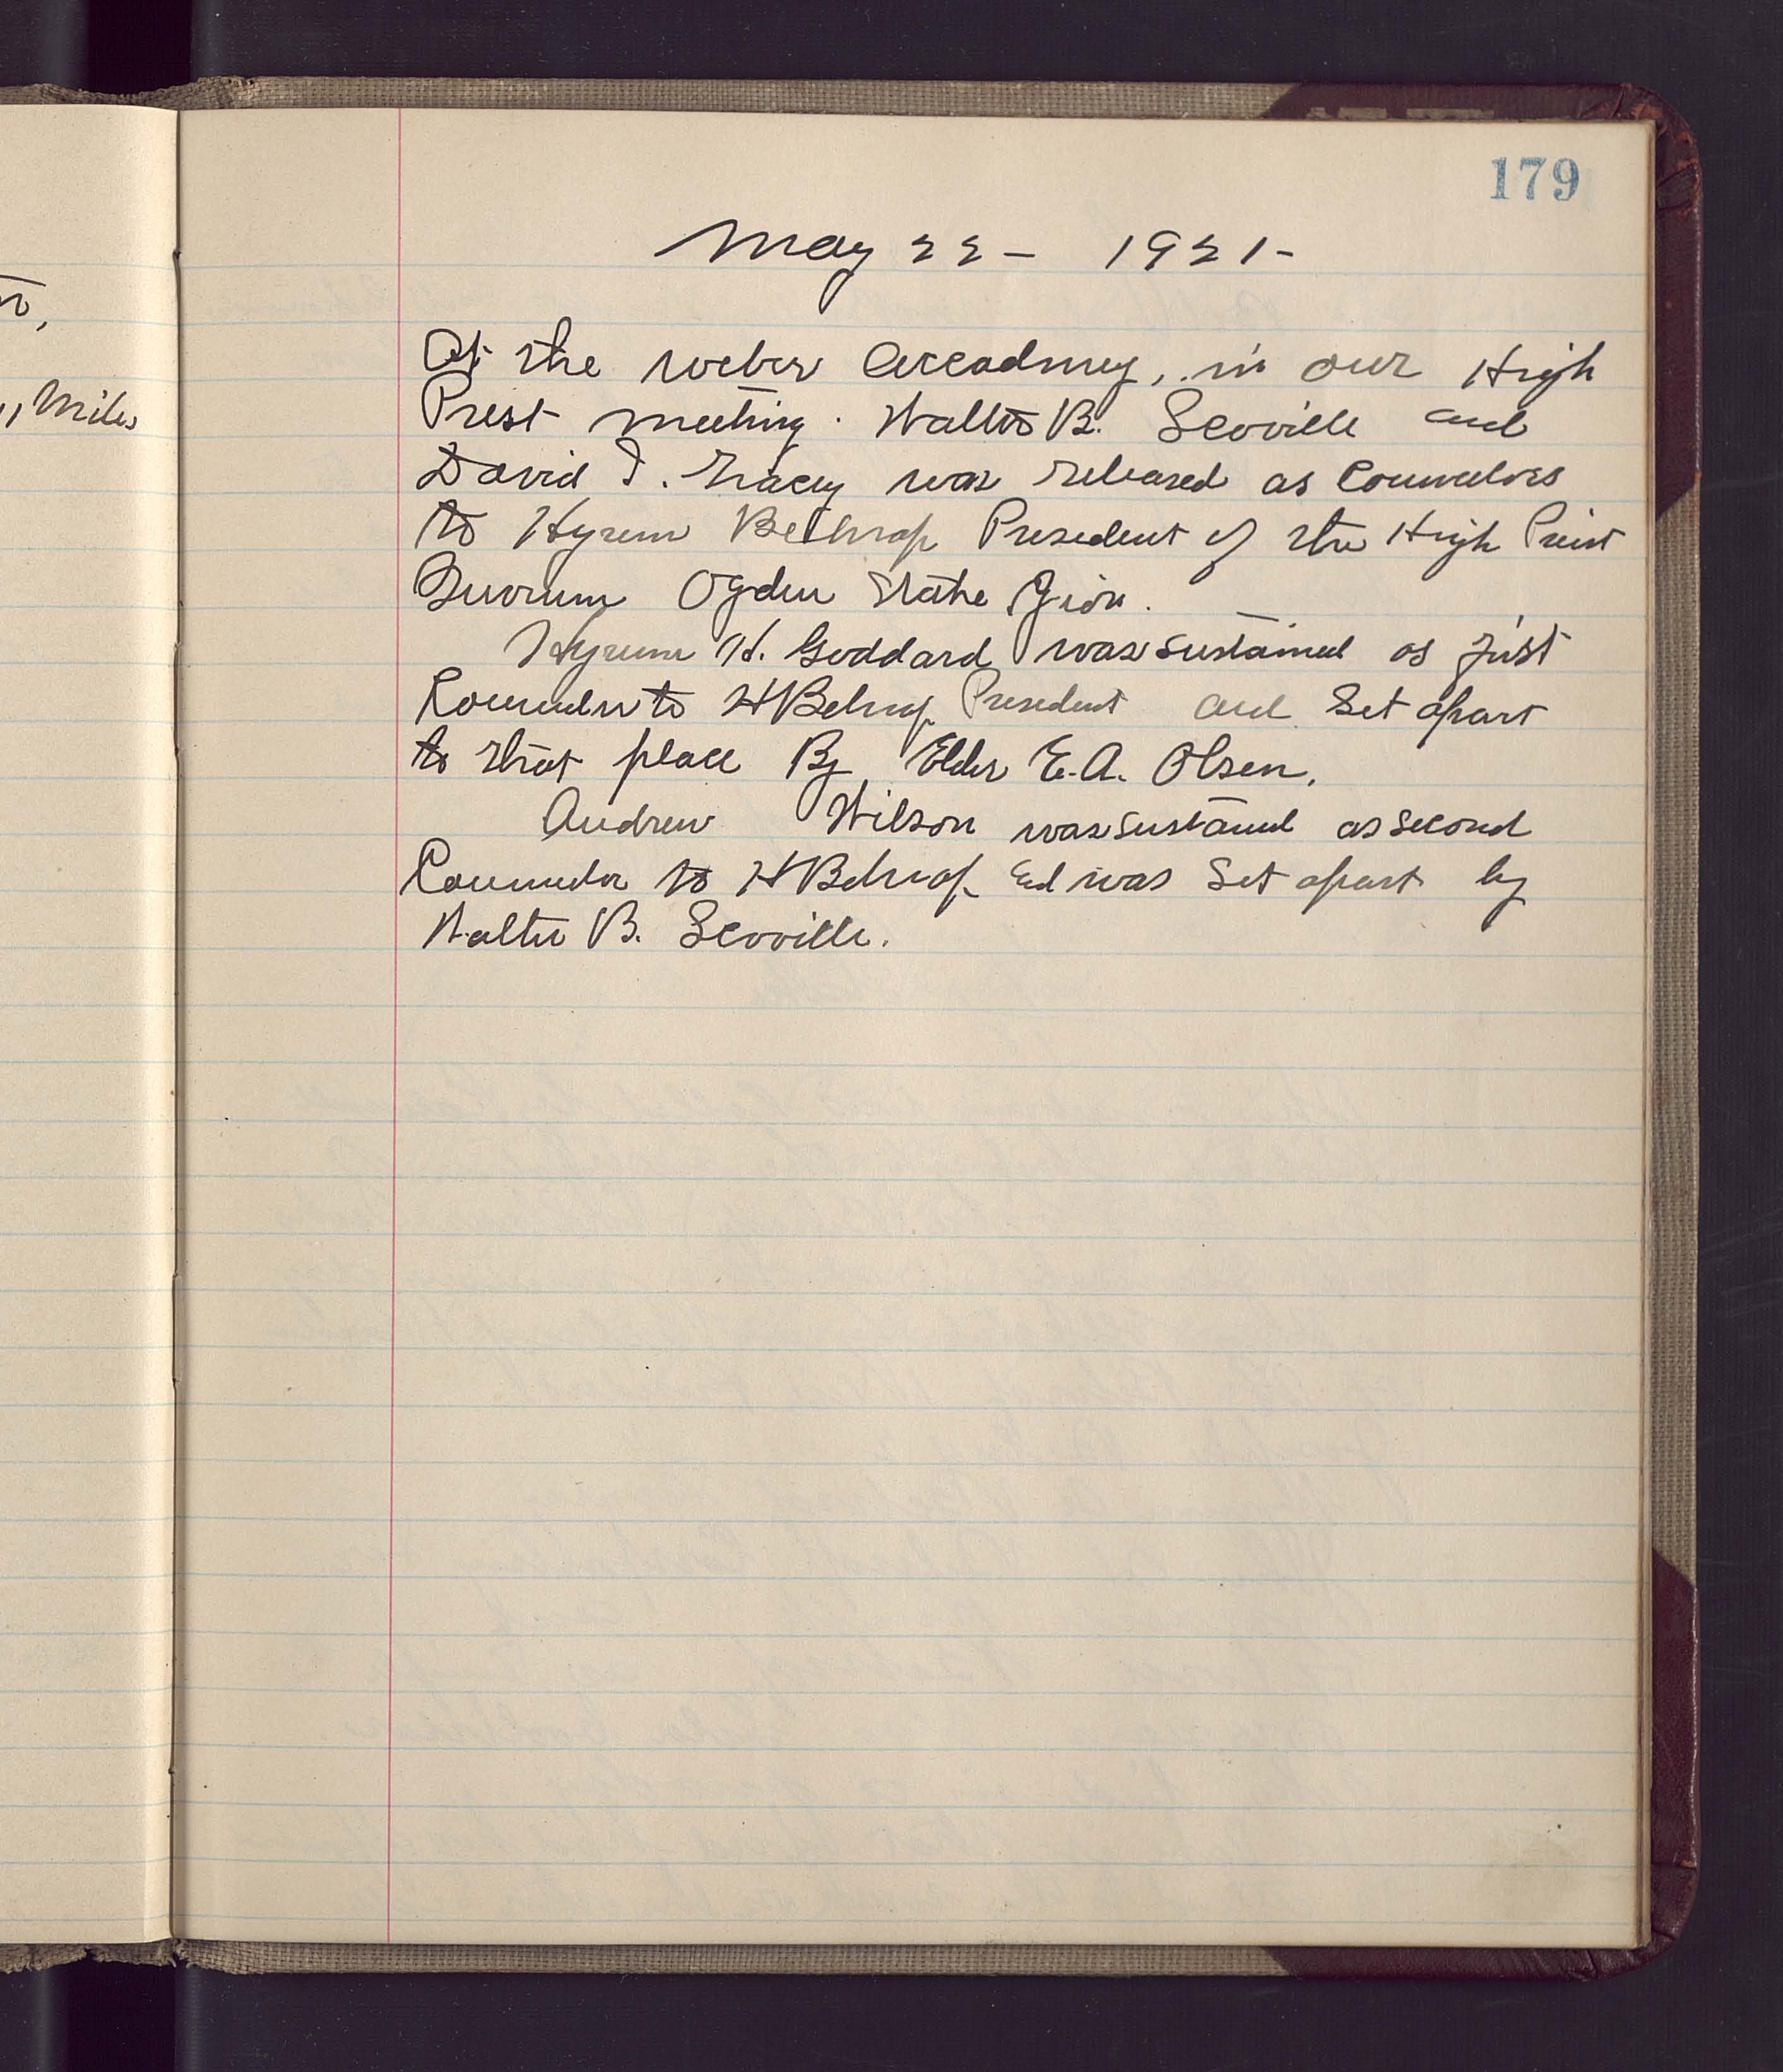 179
May 22 - 1921 -
At the weber Accadmey, in our High
Prest meeting. Walter B. Scoville and
David I. Tracey was released as Counselors
to Hyrum Belnap President of the High Priest
Quorum Ogden Stake Zion.
Hyrum H. Goddard was sustained as first
Counselor to H Belnap President and Set apart
to that place By Elder E. A. Olsen.
Andrew Wilson was sustained as second
Counselor to H Belnap and was Set apart by
Walter B. Scoville.
Miles